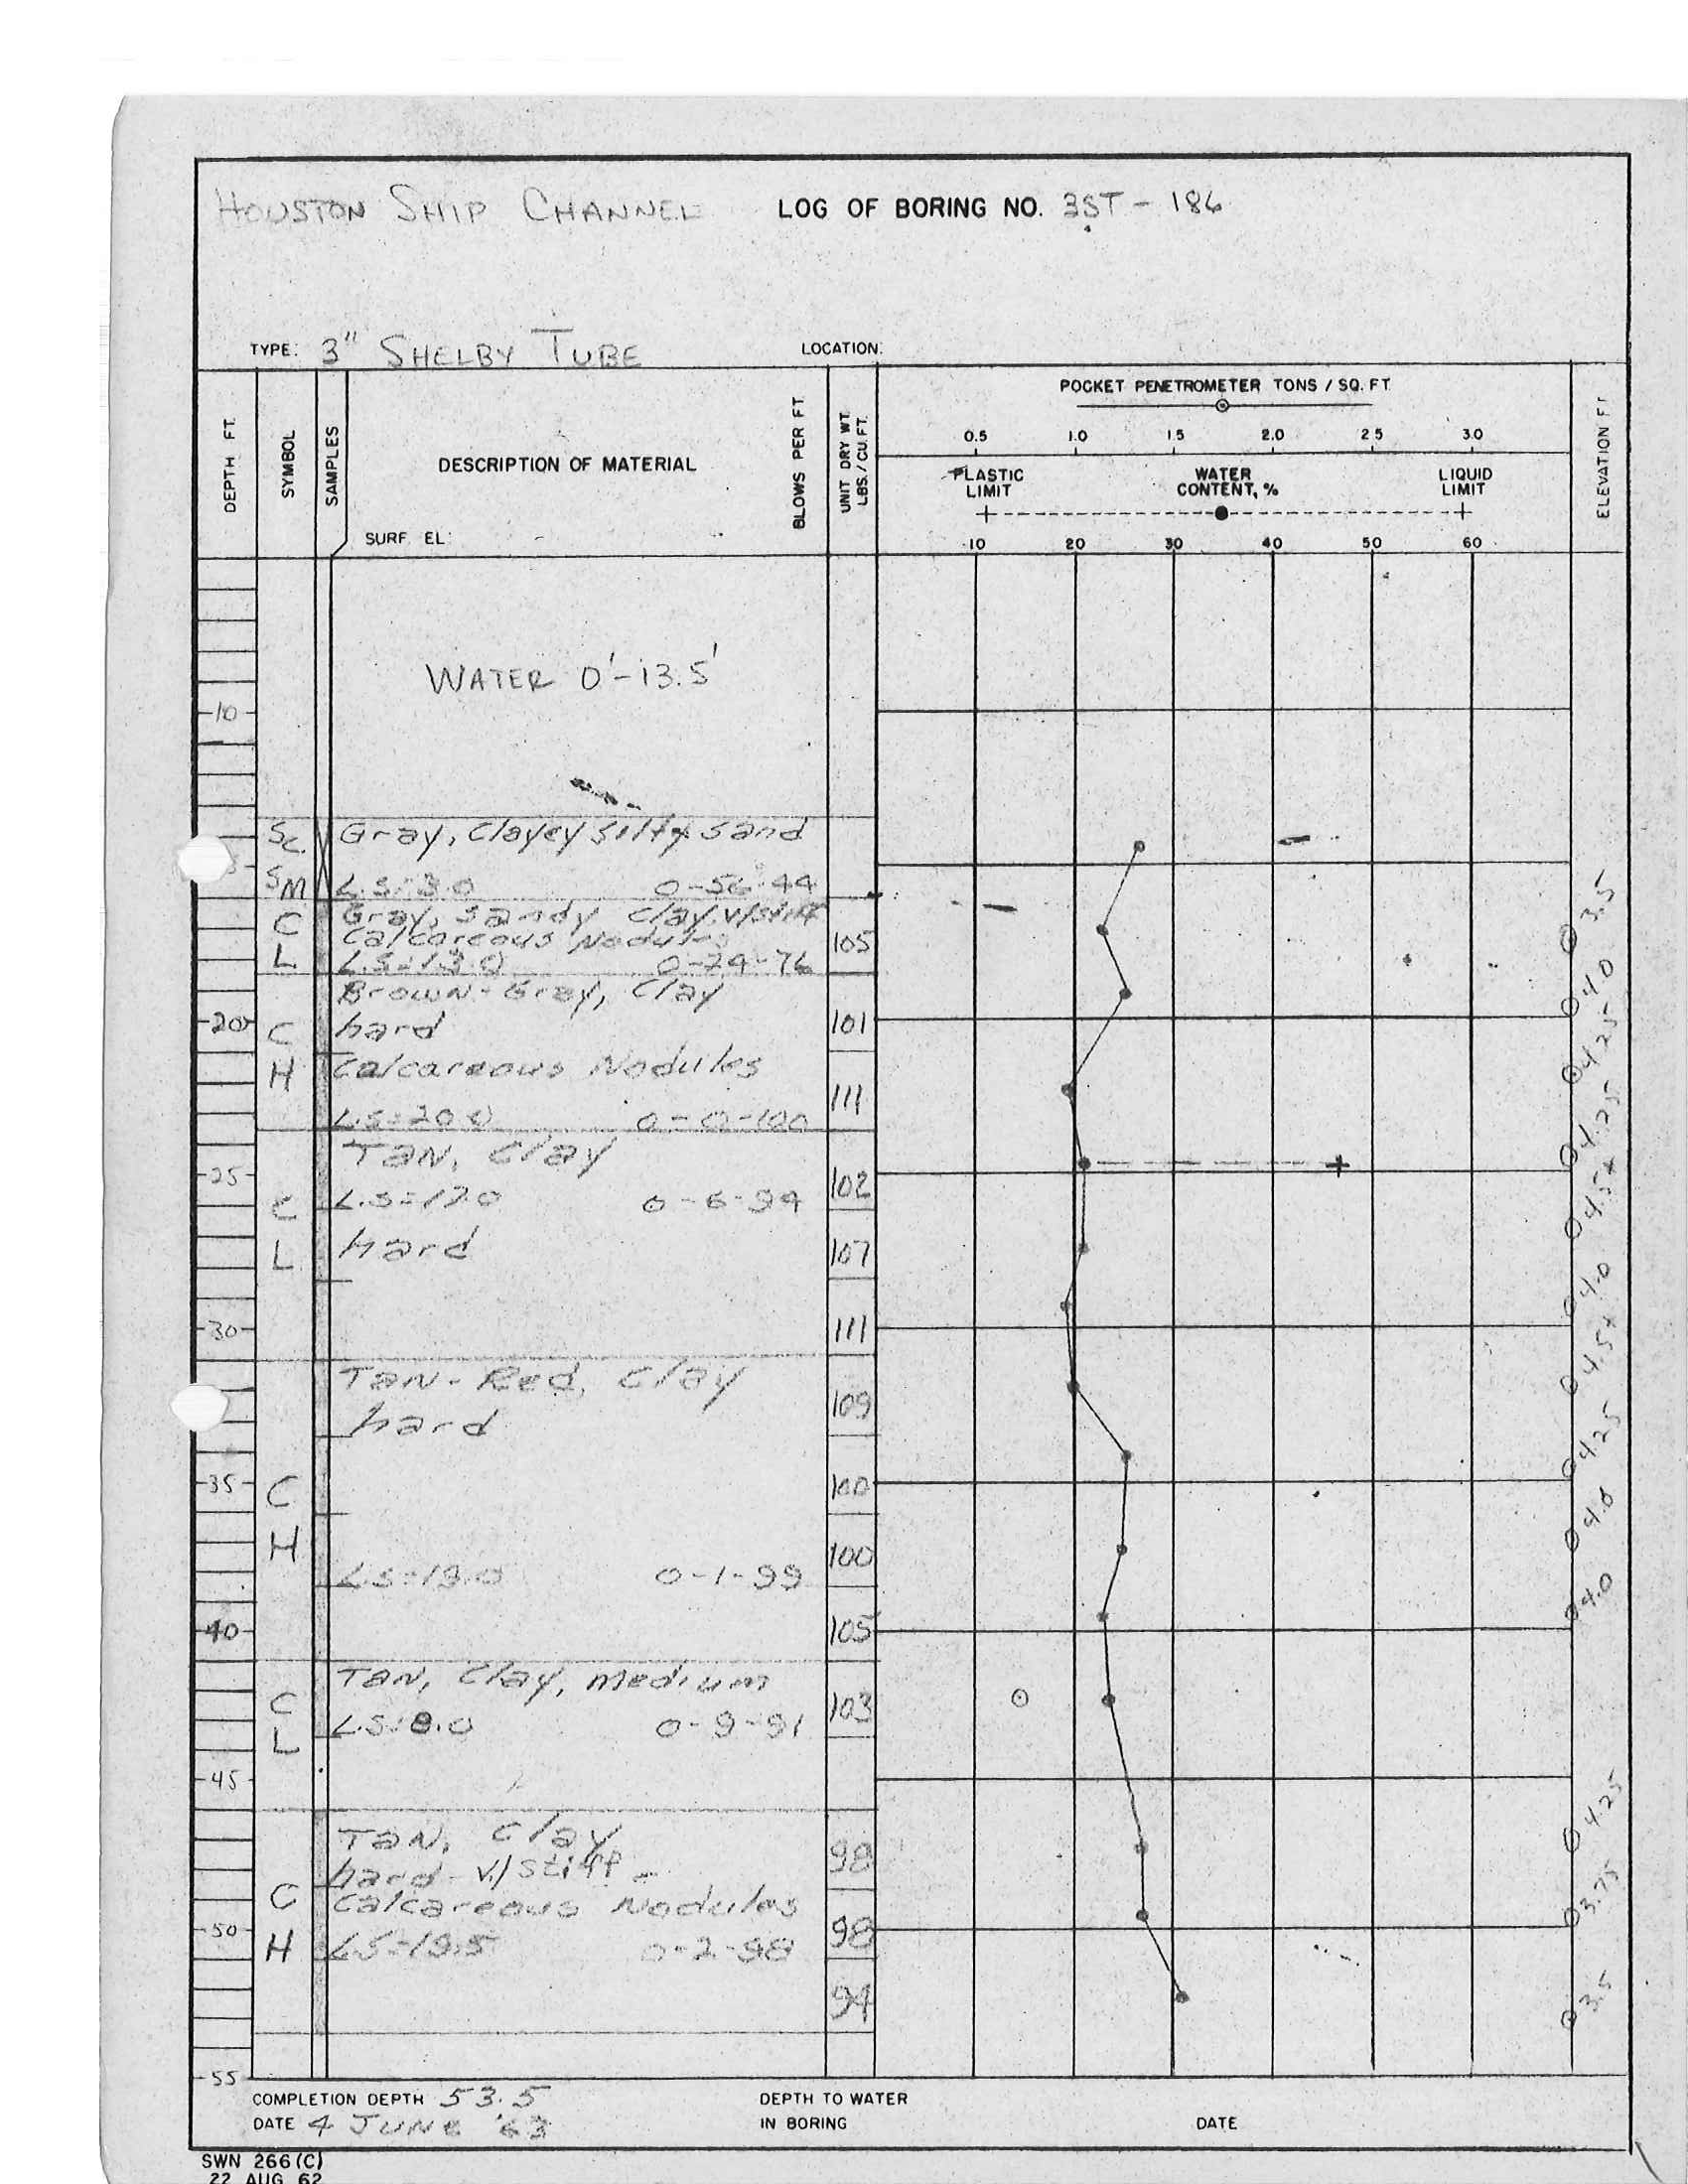 HOUSTON SHIP CHANNEL LOG OF BORING NO. 3ST - 186
TYPE: 3" SHELBY TUBE LOCATION:
DEPTH FT.
SYMBOL
SAMPLES
DESCRIPTION OF MATERIAL
SURF. EL:
BLOWS PER FT.
UNIT DRY WT. LBS./CU.FT.
POCKET PENETROMETER TONS / SQ. FT.
0.5 1.0 1.5 2.0 2.5 3.0
PLASTIC LIMIT
WATER CONTENT, %
LIQUID LIMIT
10 20 30 40 50 60
ELEVATION FT
WATER 0'-13.5'
10
SC Gray, Clayey silty sand
SM L.S=3.0 0-56-44
C Gray, Sandy Clay, v/stiff 3.5
Calcareous Nodules 105
L L.S=13.0 0-24-76
Brown-Gray, Clay 4.0
20 C hard 101
H Calcareous Nodules 4.25
111
L.S=20.0 0-0-100
TAN, Clay 4.25
25 102
C L.S=17.0 0-6-94 4.5+
L hard 107
4.0
30 111
TAN-Red, Clay 4.5+
hard 109
4.25
35 C 100
4.0
H 100
L.S=19.0 0-1-99
4.0
40 105
TAN, Clay, medium
C 103
L L.S=8.0 0-9-91
45
TAN, Clay 4.25
hard-v/stiff 98
C Calcareous Nodules 3.75
50 98
H L.S=19.5 0-2-98
94 3.5
55
COMPLETION DEPTH 53.5 DEPTH TO WATER
DATE 4 JUNE '63 IN BORING DATE
SWN 266(C)
22 AUG 62